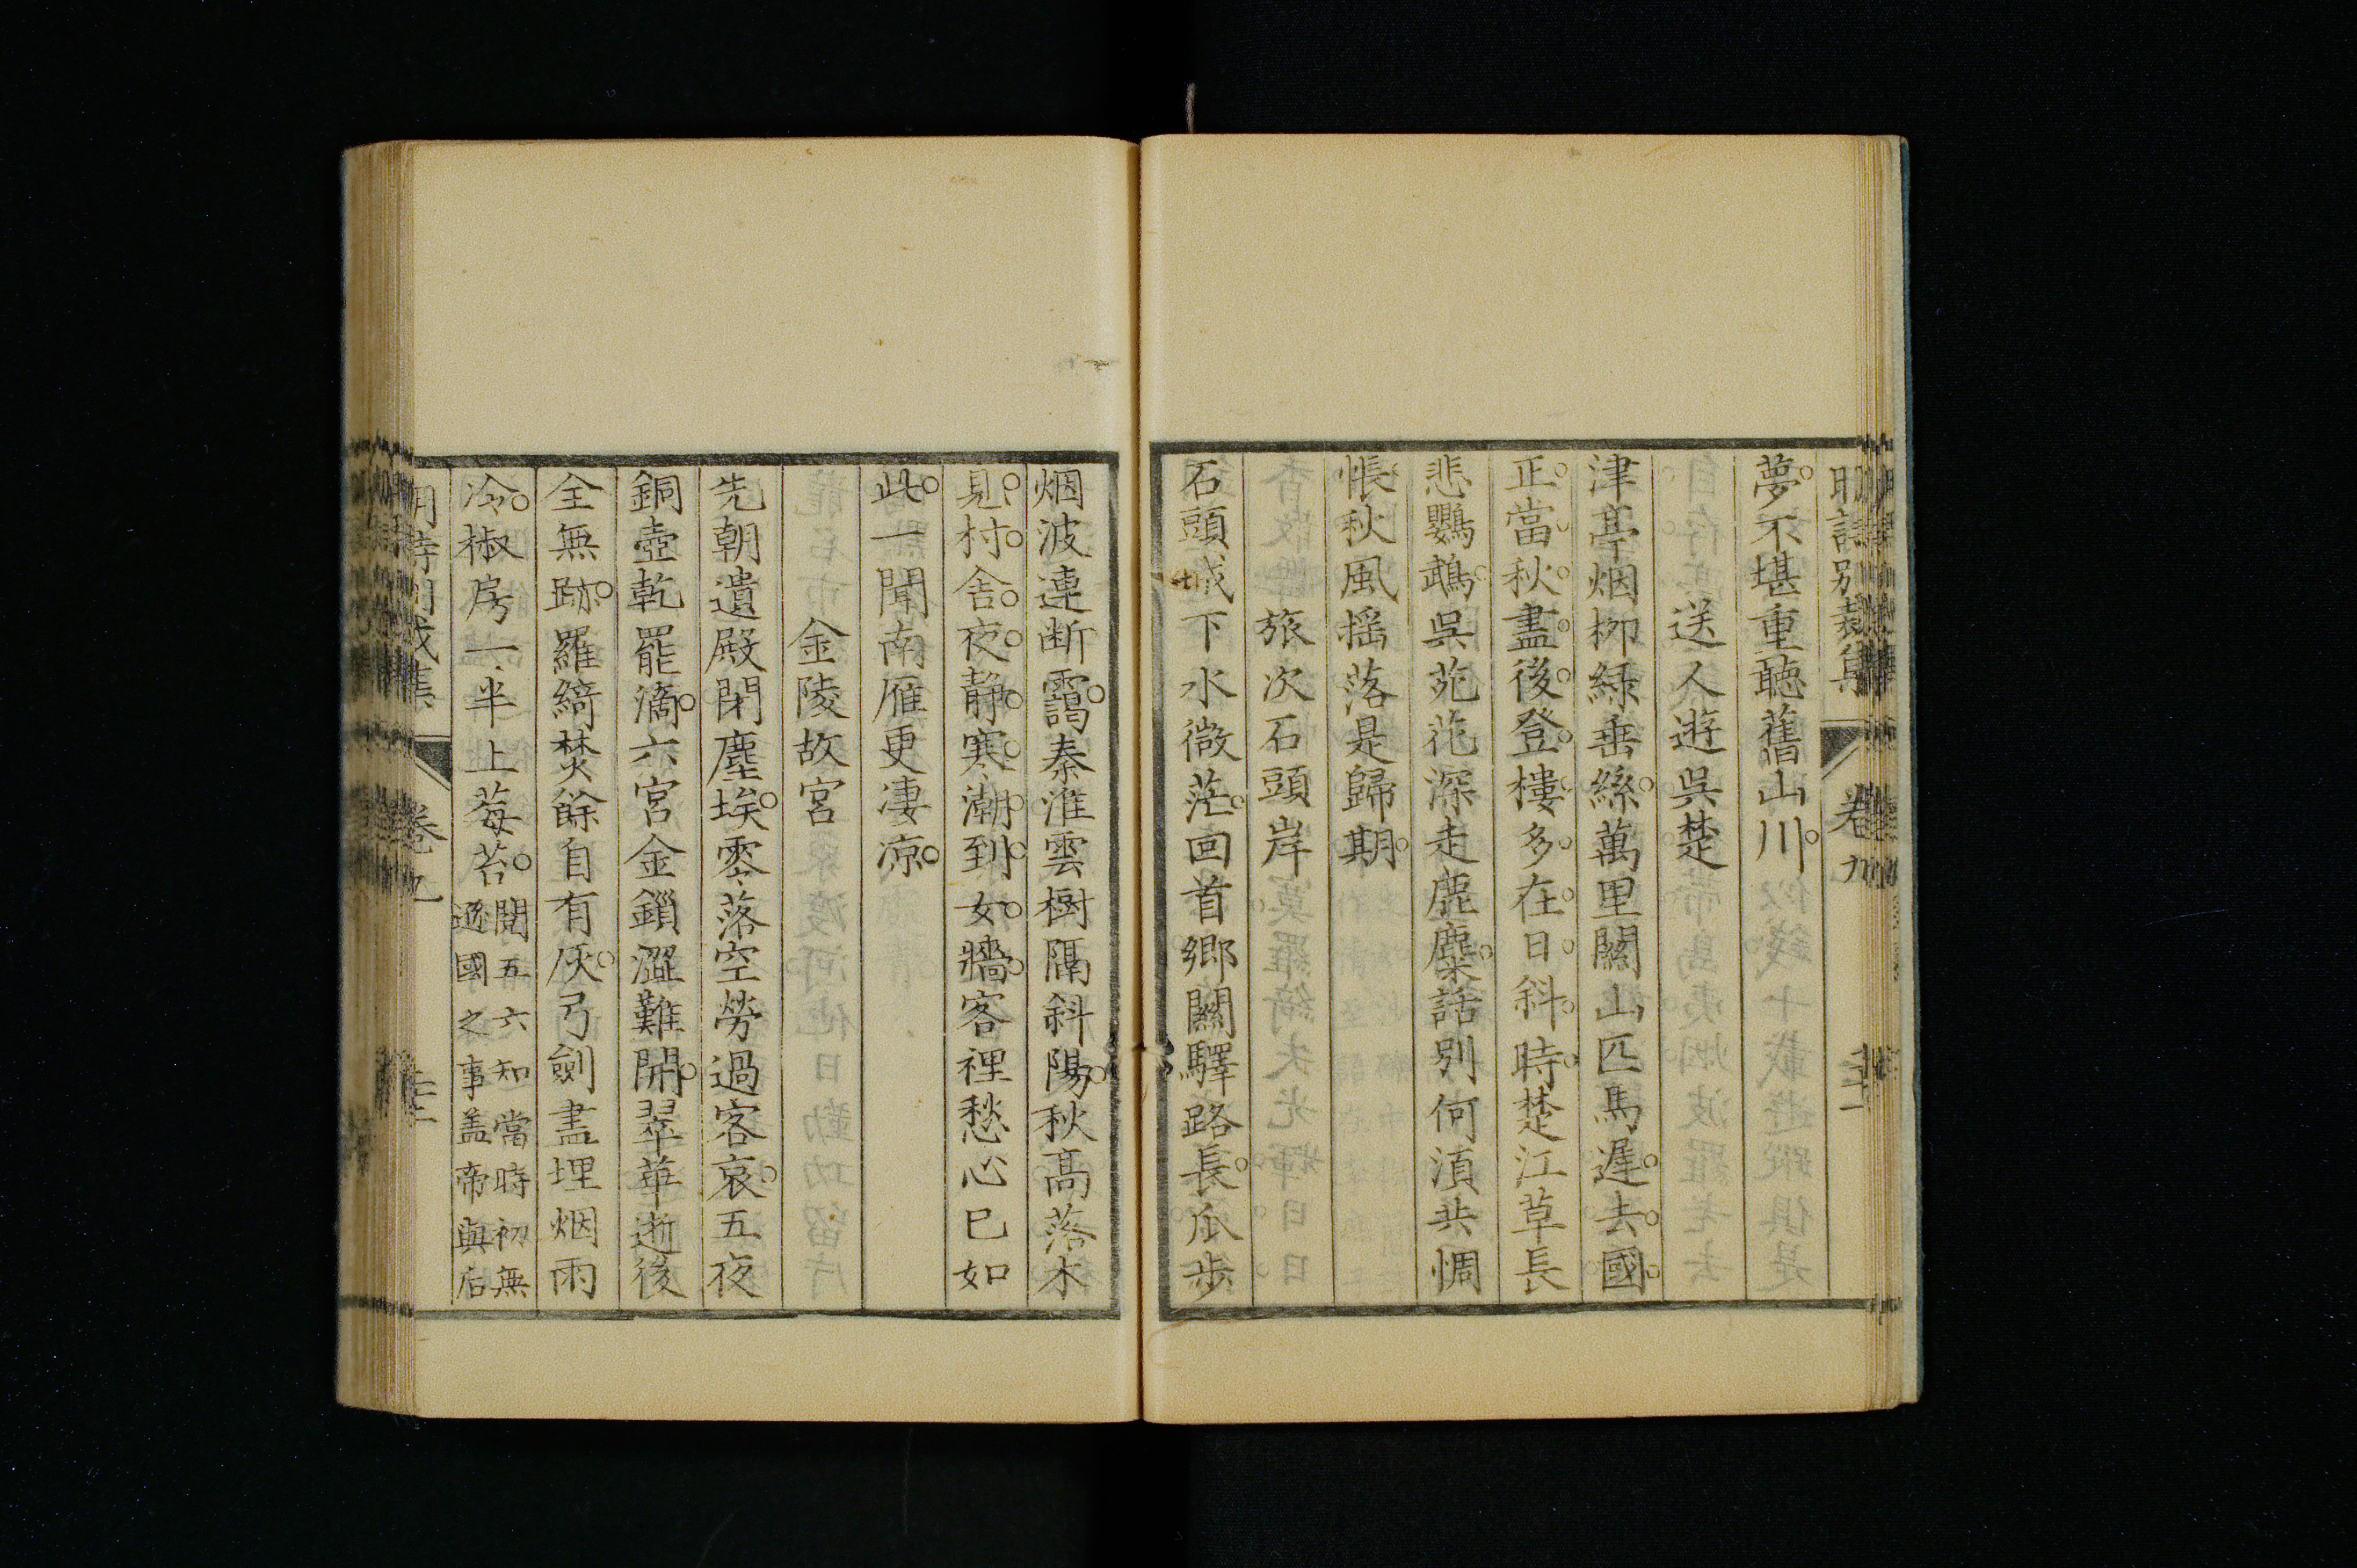 明詩別裁集 卷九
夢不堪重聽舊山川
送人遊吳楚
津亭烟柳綠垂絲萬里關山匹馬遲去國
正當秋盡後登樓多在日斜時楚江草長
悲鸚鵡吳苑花深走鹿麋話別何須共惆
悵秋風搖落是歸期
旅次石頭岸
石頭城下水微茫回首鄉關驛路長瓜步
烟波連断靄秦淮雲樹隔斜陽秋高落木
見村舍夜靜寒潮到女牆客裡愁心已如
此一聞南雁更淒凉
金陵故宮
先朝遺殿閉塵埃零落空勞過客哀五夜
銅壺乾罷滴六宮金鎖澀難開翠華逝後
全無跡羅綺焚餘自有灰弓劍盡埋烟雨
冷椒房一半上莓苔閱五六知當時初無
遜國之事盖帝與后
卷九